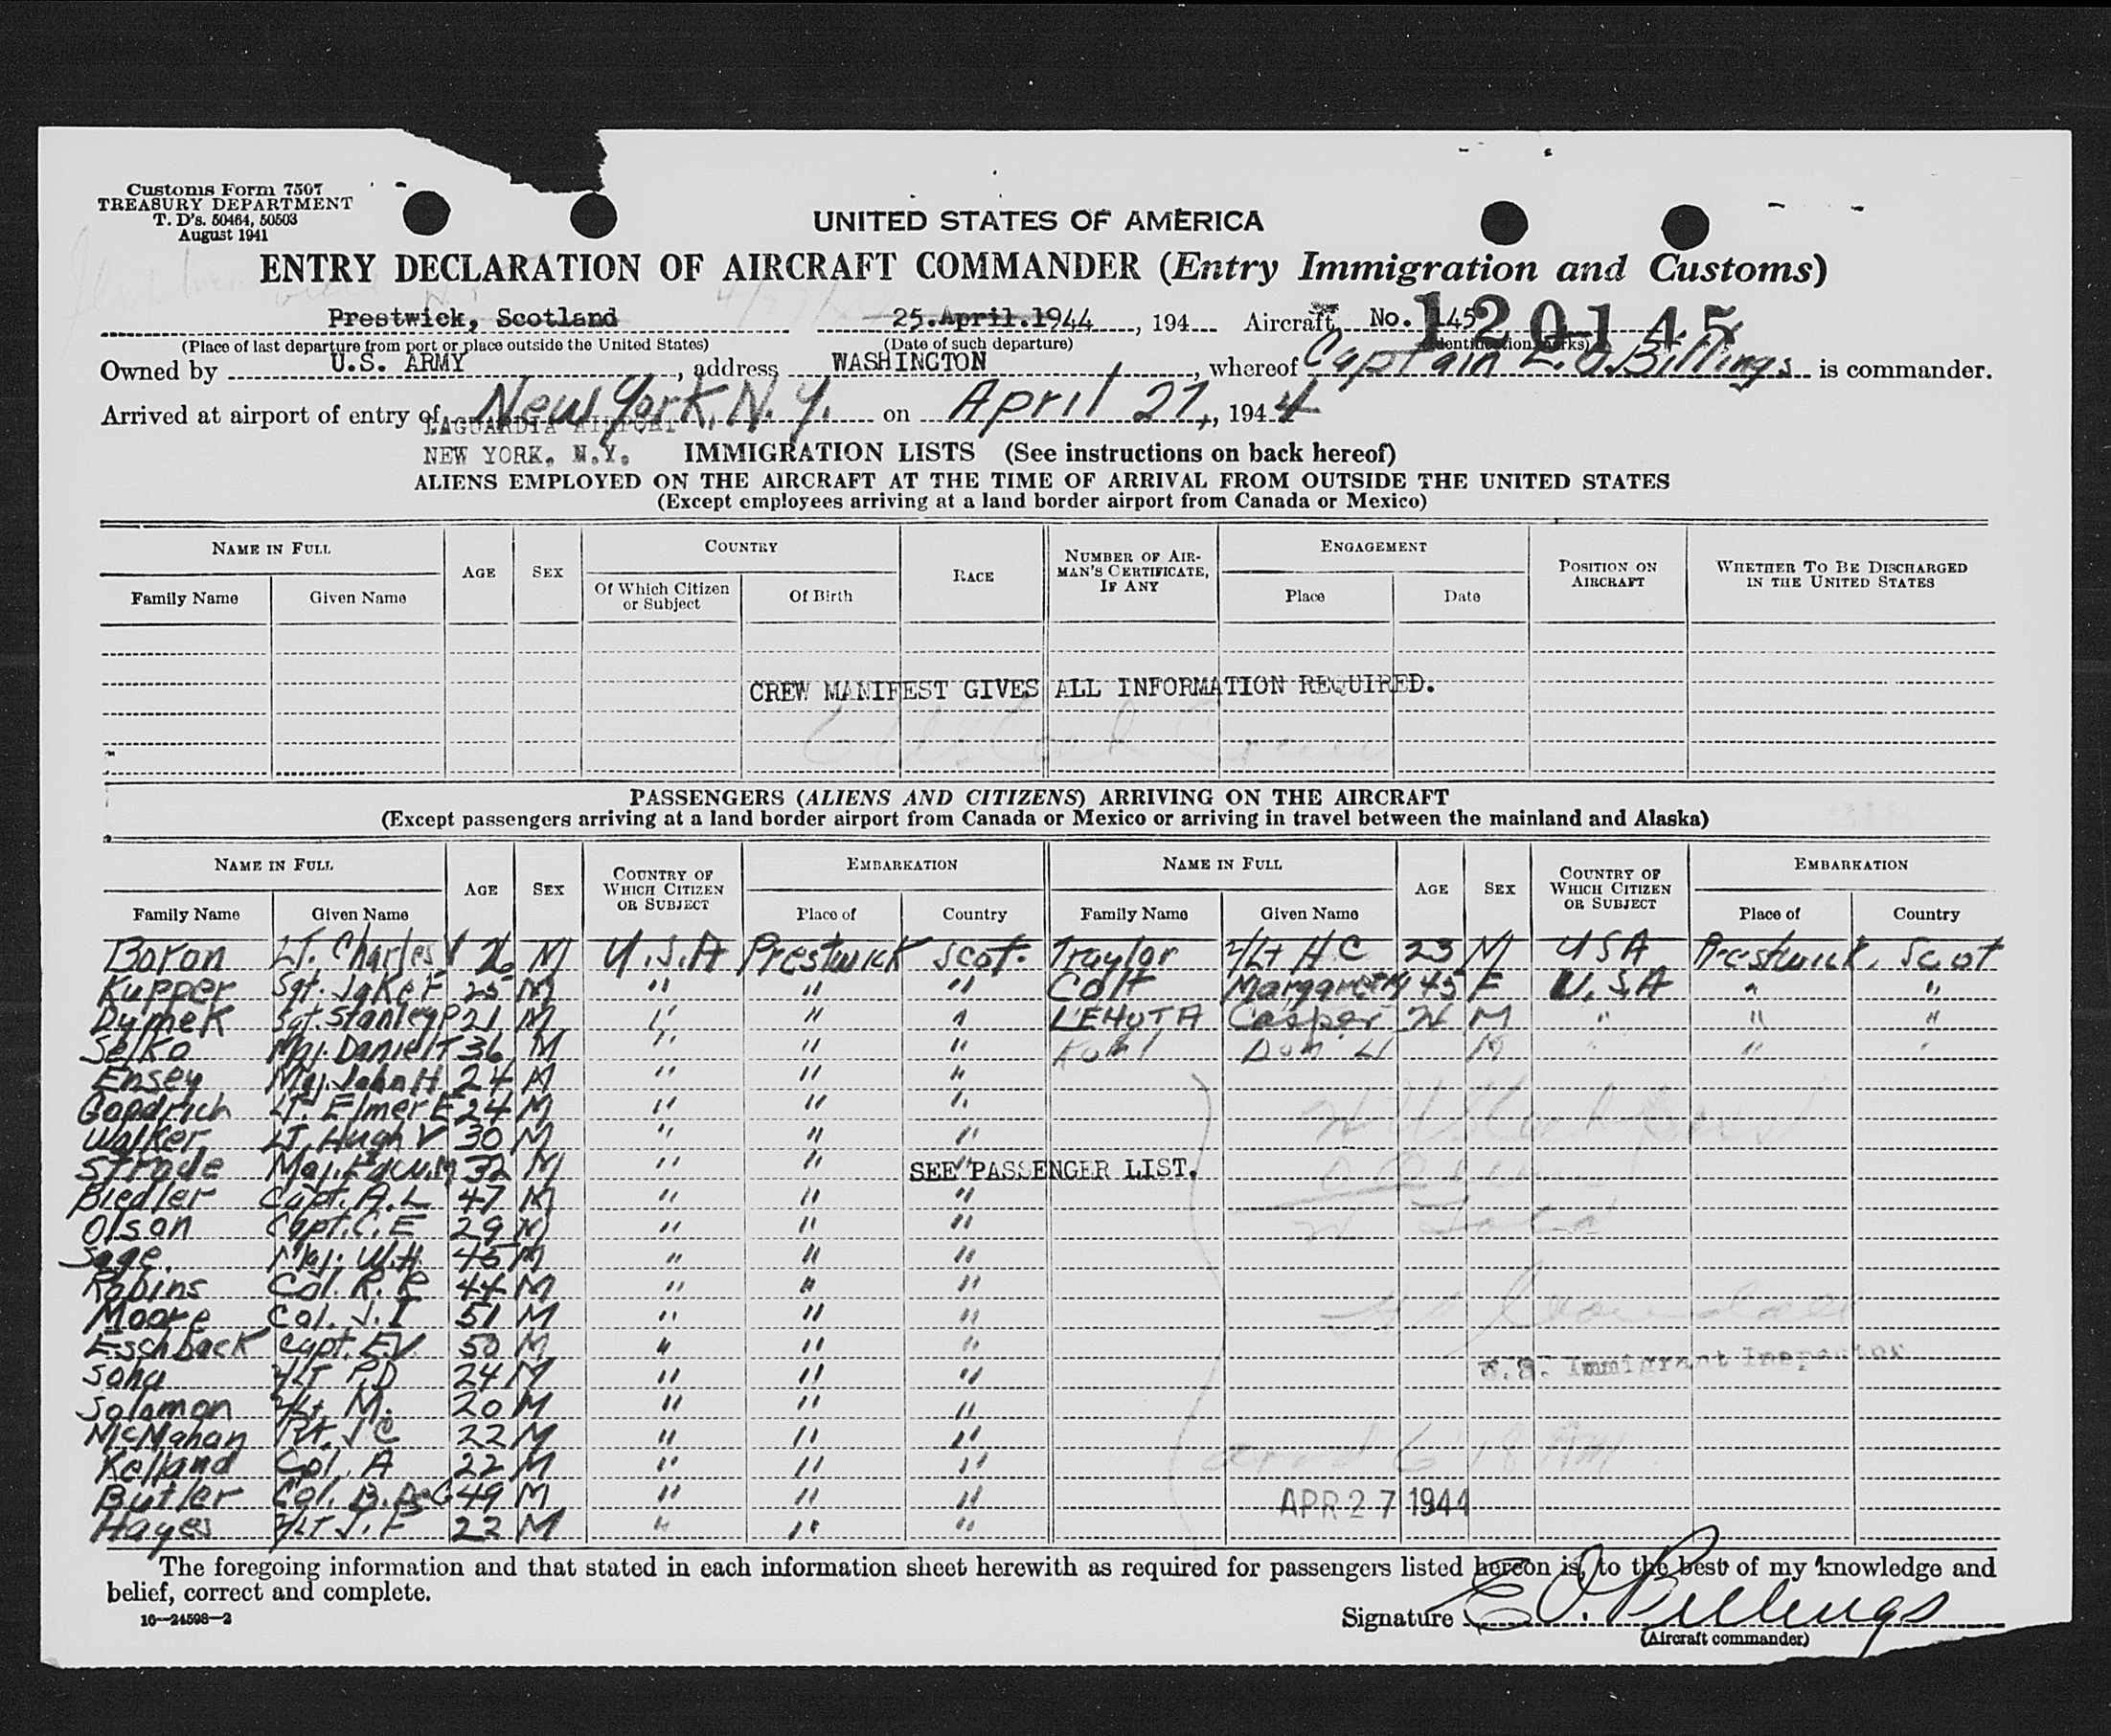 Customs Form 7507
TREASURY DEPARTMENT
T. D's. 50464, 50503
August 1941
UNITED STATES OF AMERICA
ENTRY DECLARATION OF AIRCRAFT COMMANDER (Entry Immigration and Customs)
Prestwick, Scotland 25.April.1944, 194 Aircraft No. 145 120145
(Place of last departure from port or place outside the United States) (Date of such departure) (Identification marks)
Owned by U.S. ARMY, address WASHINGTON, whereof Captain E.O. Billings is commander.
Arrived at airport of entry of New York, N.Y. on April 27, 1944
LAGUARDIA AIRPORT
NEW YORK, N.Y. IMMIGRATION LISTS (See instructions on back hereof)
ALIENS EMPLOYED ON THE AIRCRAFT AT THE TIME OF ARRIVAL FROM OUTSIDE THE UNITED STATES
(Except employees arriving at a land border airport from Canada or Mexico)
NAME IN FULL AGE SEX COUNTRY RACE NUMBER OF AIRMAN'S CERTIFICATE, IF ANY ENGAGEMENT POSITION ON AIRCRAFT WHETHER TO BE DISCHARGED IN THE UNITED STATES
Family Name Given Name Of Which Citizen or Subject Of Birth Place Date
CREW MANIFEST GIVES ALL INFORMATION REQUIRED.
PASSENGERS (ALIENS AND CITIZENS) ARRIVING ON THE AIRCRAFT
(Except passengers arriving at a land border airport from Canada or Mexico or arriving in travel between the mainland and Alaska)
NAME IN FULL AGE SEX COUNTRY OF WHICH CITIZEN OR SUBJECT EMBARKATION NAME IN FULL AGE SEX COUNTRY OF WHICH CITIZEN OR SUBJECT EMBARKATION
Family Name Given Name Place of Country Family Name Given Name Place of Country
Boron Lt. Charles V 26 M U.S.A Prestwick Scot. Traylor 2/Lt H C 23 M USA Prestwick, Scot
Kupper Sgt. Jake F 25 M " " " Colt Margaret M 45 F U.S.A " "
Dymek Sgt. Stanley P 21 M " " " LEHOTA Casper M " " "
Selko Maj. Daniel T 36 M " " " Don M " " "
Ensey Maj. John H 24 M " " "
Goodrich Lt. Elmer E 24 M " " "
Walker Lt. Hugh V 30 M " " "
Strode Maj. 32 M " " " SEE PASSENGER LIST.
Biedler Capt. A. L 47 M " " "
Olson Capt. C. E 29 M " " "
Sage. Maj. W.H. 45 M " " "
Robins Col. R. R 44 M " " "
Moore Col. J. I 51 M " " "
Eschback Capt. E.V. 50 M " " "
Soha 2/LT P.D 24 M " " " U.S. Immigrant Inspector
Solomon 2/Lt M. 20 M " " "
McMahan J C 22 M " " "
Kelland Col. A 22 M " " "
Butler Col. B. 49 M " " " APR 27 1944
Hayes 2/LT J. F 22 M " " "
The foregoing information and that stated in each information sheet herewith as required for passengers listed hereon is, to the best of my knowledge and
belief, correct and complete.
16—24598—2
Signature E O. Billings
(Aircraft commander)